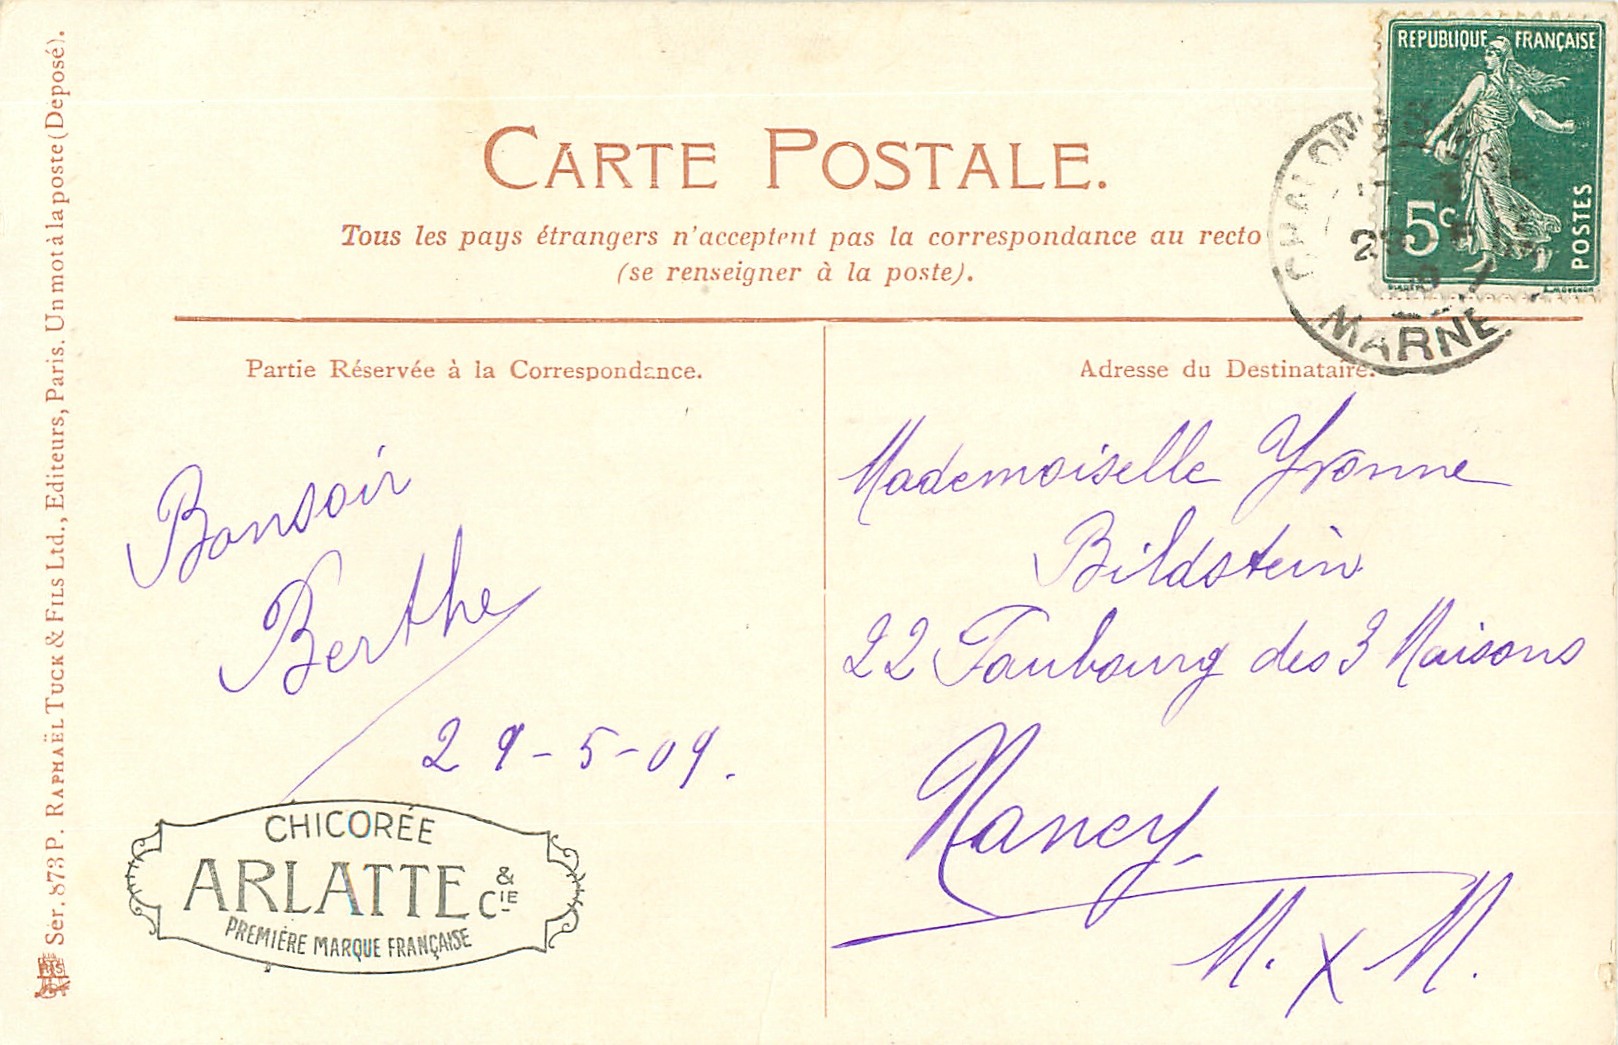 CARTE POSTALE.
Tous les pays étrangers n'acceptent pas la correspondance au recto
(se renseigner à la poste).
REPUBLIQUE FRANÇAISE
5c
POSTES
MARNE
Ser. 873 P. RAPHAËL TUCK & FILS Ltd., Editeurs, Paris. Un mot à la poste (Déposé).
Partie Réservée à la Correspondance.
Bonsoir
Berthe
29-5-09.
CHICORÉE
ARLATTE & CIE
PREMIÈRE MARQUE FRANÇAISE
Adresse du Destinataire.
Mademoiselle Yvonne
Bildstein
22 Faubourg des 3 Maisons
Nancy
M. x M.